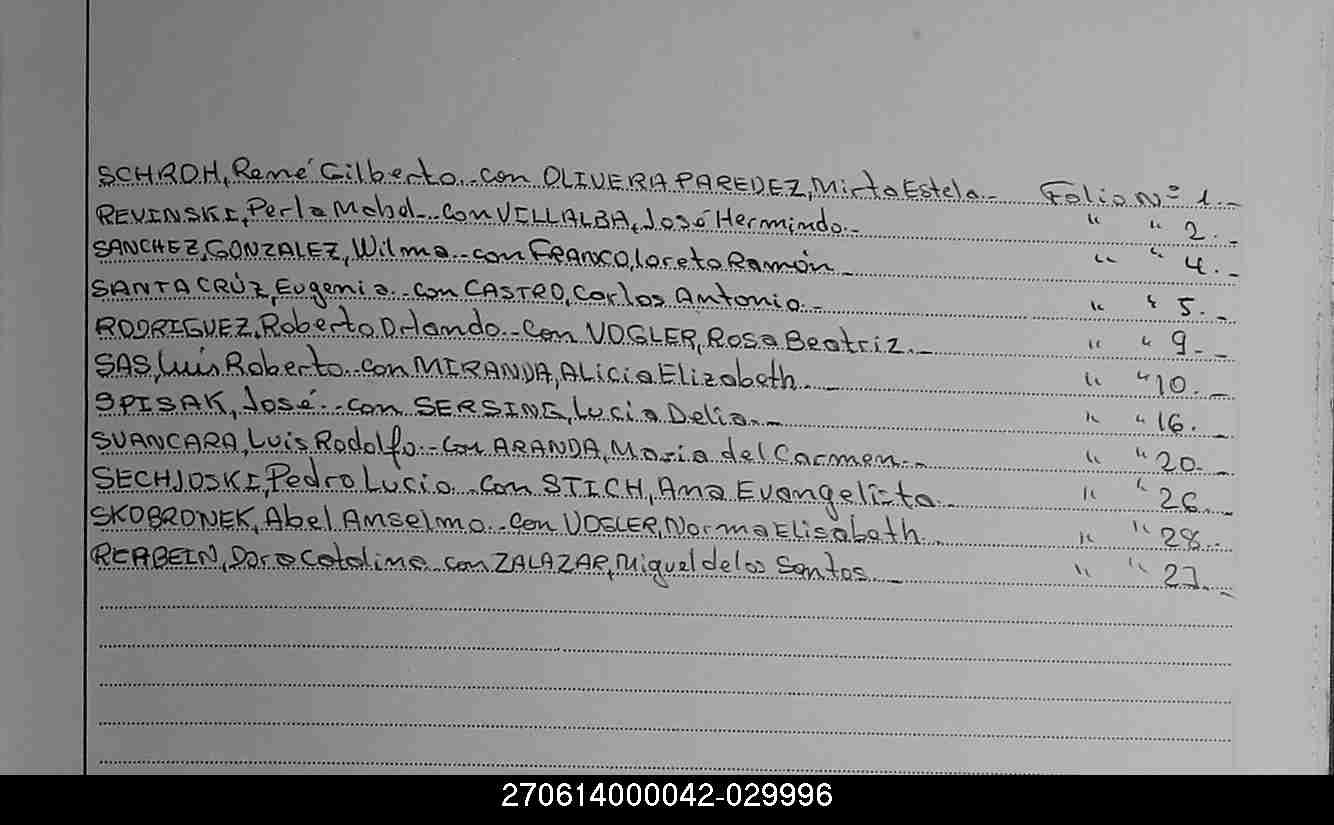 SCHROH, René Gilberto.-con OLIVERA PAREDEZ, Mirta Estela.- Folio Nº 1.-
REVINSKI, Perla Mabel.-con VILLALBA, José Hermindo.- " " 2.-
SANCHEZ, GONZALEZ, Wilma.-con FRANCO, Loreto Ramón.- " " 4.-
SANTA CRÚZ, Eugenia.-con CASTRO, Carlos Antonio.- " " 5.-
RODRIGUEZ, Roberto Orlando.-con VOGLER, Rosa Beatriz.- " " 9.-
SAS, Luis Roberto.-con MIRANDA, Alicia Elizabeth.- " " 10.-
SPISAK, José.-con SERSING, Lucia Delia.- " " 16.-
SVANCARA, Luis Rodolfo.-con ARANDA, Maria del Carmen.- " " 20.-
SECHJOSKI, Pedro Lucio.-con STICH, Ana Evangelista.- " " 26.-
SKOBRONEK, Abel Anselmo.-con VOGLER, Norma Elisabeth.- " " 28.-
REABEIN, Dora Catalina.-con ZALAZAR, Miguel de los Santos.- " " 27.-
270614000042-029996